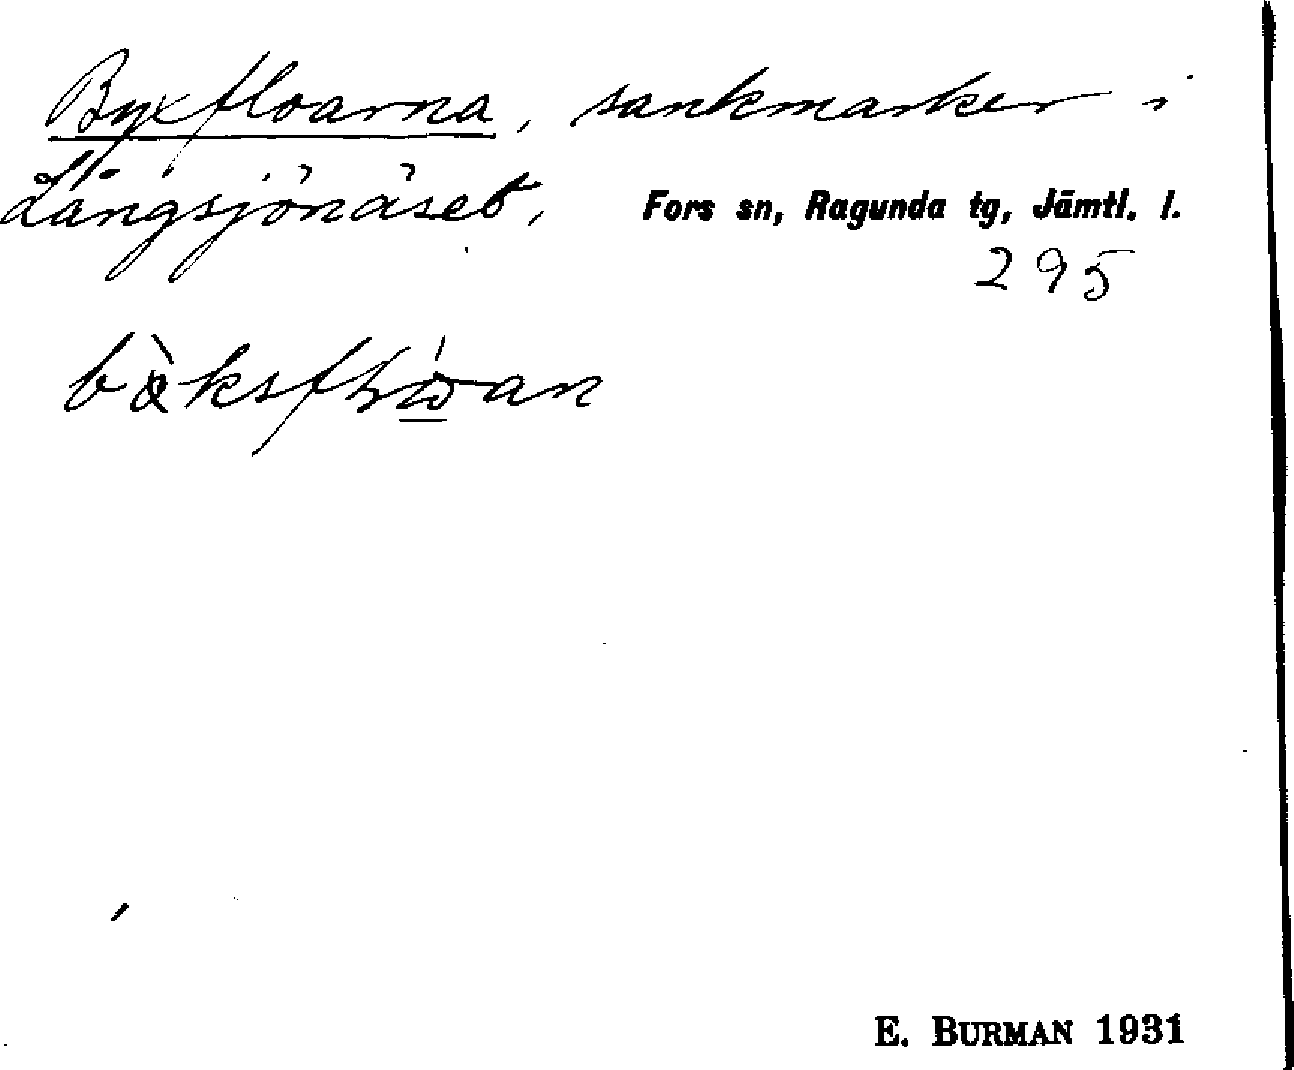 Byxfloarna, sankmarker i
Långsjönäset, Fors sn, Ragunda tg, Jämtl. l.
295
E. BURMAN 1931